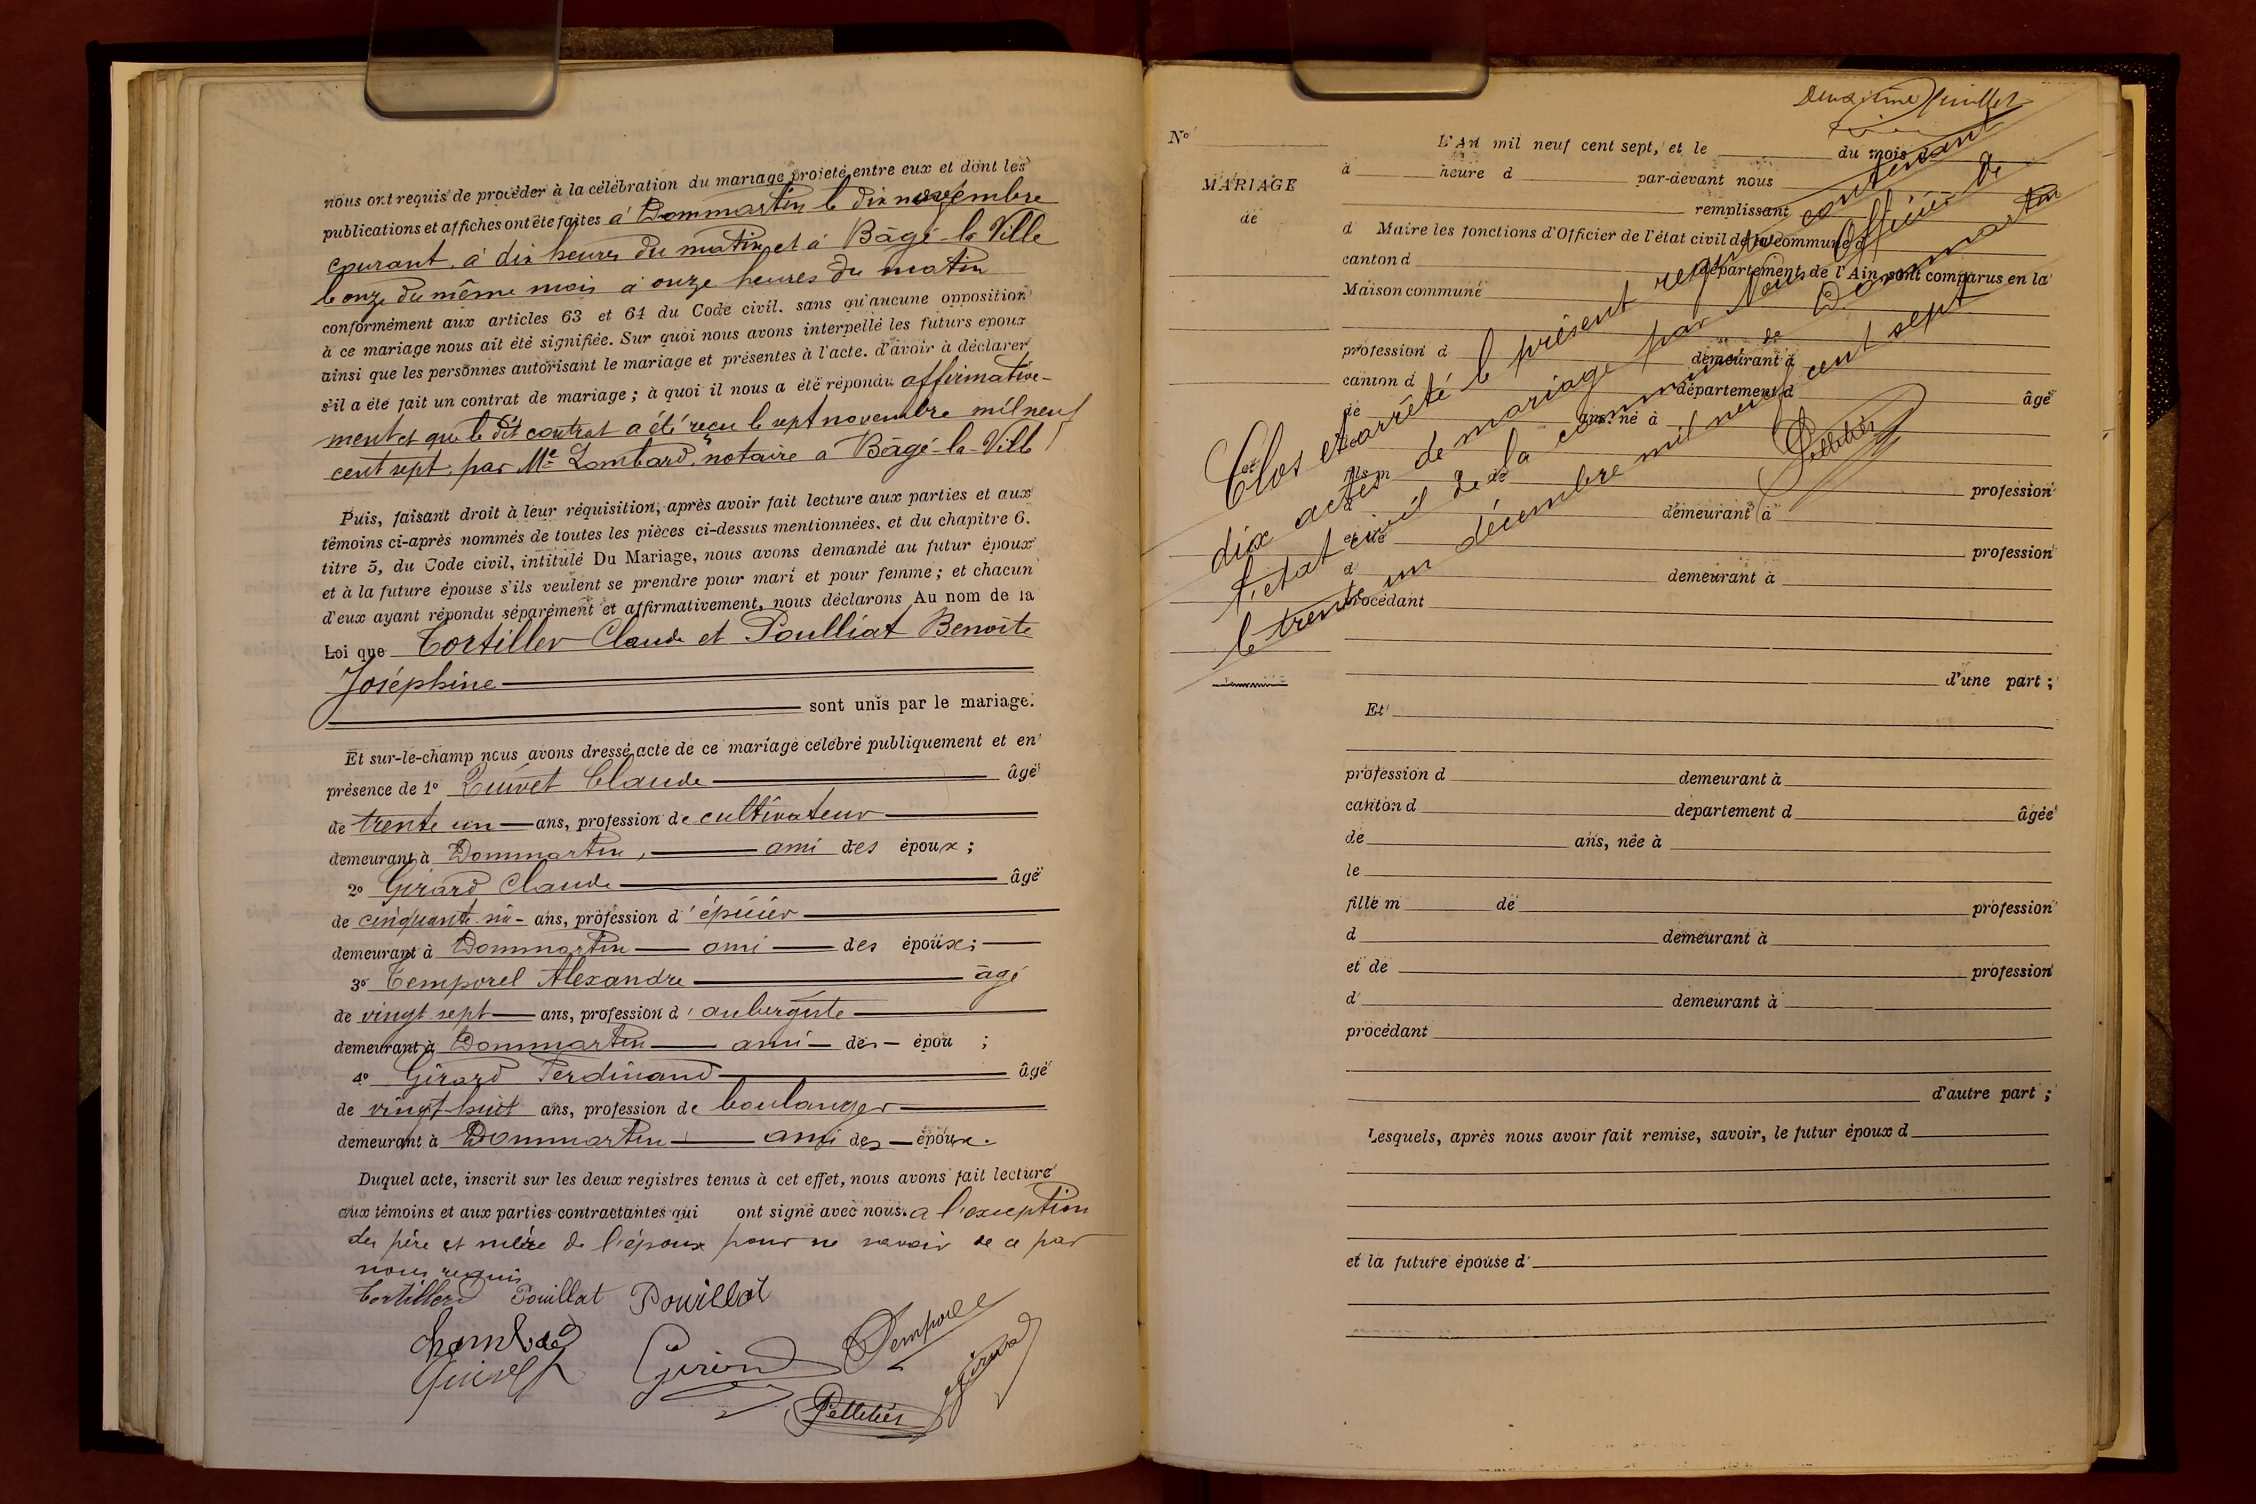 nous ont requis de procéder à la célébration du mariage projeté entre eux et dont les
publications et affiches ont été faites à Dommartin le dix novembre
courant, à dix heures du matin et à Bâgé-la-Ville
le onze du même mois à onze heures du matin
conformément aux articles 63 et 64 du Code civil, sans qu'aucune opposition
à ce mariage nous ait été signifiée. Sur quoi nous avons interpellé les futurs époux
ainsi que les personnes autorisant le mariage et présentes à l'acte, d'avoir à déclarer
s'il a été fait un contrat de mariage ; à quoi il nous a été répondu affirmative-
ment et que le dit contrat a été reçu le sept novembre mil neuf
cent sept, par Me Lombard, notaire à Bâgé-la-Ville
Puis, faisant droit à leur réquisition, après avoir fait lecture aux parties et aux
témoins ci-après nommés de toutes les pièces ci-dessus mentionnées, et du chapitre 6,
titre 5, du Code civil, intitulé Du Mariage, nous avons demandé au futur époux
et à la future épouse s'ils veulent se prendre pour mari et pour femme ; et chacun
d'eux ayant répondu séparément et affirmativement, nous déclarons Au nom de la
Loi que Tortiller Claude et Poulliat Benoîte
Joséphine
sont unis par le mariage.
Et sur-le-champ nous avons dressé acte de ce mariage célébré publiquement et en
présence de 1º Quivet Claude âgé
de trente un ans, profession de cultivateur
demeurant à Dommartin, ami des époux ;
2º Girard Claude âgé
de cinquante six ans, profession d'épicier
demeurant à Dommartin ami des époux ;
3º Temporel Alexandre âgé
de vingt sept ans, profession d'aubergiste
demeurant à Dommartin ami des épou ;
4º Girard Ferdinand âgé
de vingt huit ans, profession de boulanger
demeurant à Dommartin ami des époux.
Duquel acte, inscrit sur les deux registres tenus à cet effet, nous avons fait lecture
aux témoins et aux parties contractantes qui ont signé avec nous. a l'exception
des père et mère de l'époux pour ne savoir de ce par
nous requis
Tortiller Pouillat Pouillat
Temporel
Girard
Pelletier
Deuxième feuillet
Nº
MARIAGE
de
L'An mil neuf cent sept, et le du mois d
à heure d par-devant nous
remplissant
d Maire les fonctions d'Officier de l'état civil de la commune d
canton d département de l'Ain, sont comparus en la
Maison commune
profession d demeurant à
canton d département d âgé
de ans, né à
le
fils m de profession
d demeurant à
et de profession
d demeurant à
procédant
d'une part ;
Clos et arrêté le présent registre contenant
dix actes de mariage par Nous Officier de
l'état civil de la commune de Dommartin
le trente un décembre mil neuf cent sept
Pelletier
Et
profession d demeurant à
canton d département d âgée
de ans, née à
le
fille m de profession
d demeurant à
et de profession
d demeurant à
procédant
d'autre part ;
Lesquels, après nous avoir fait remise, savoir, le futur époux d
et la future épouse d